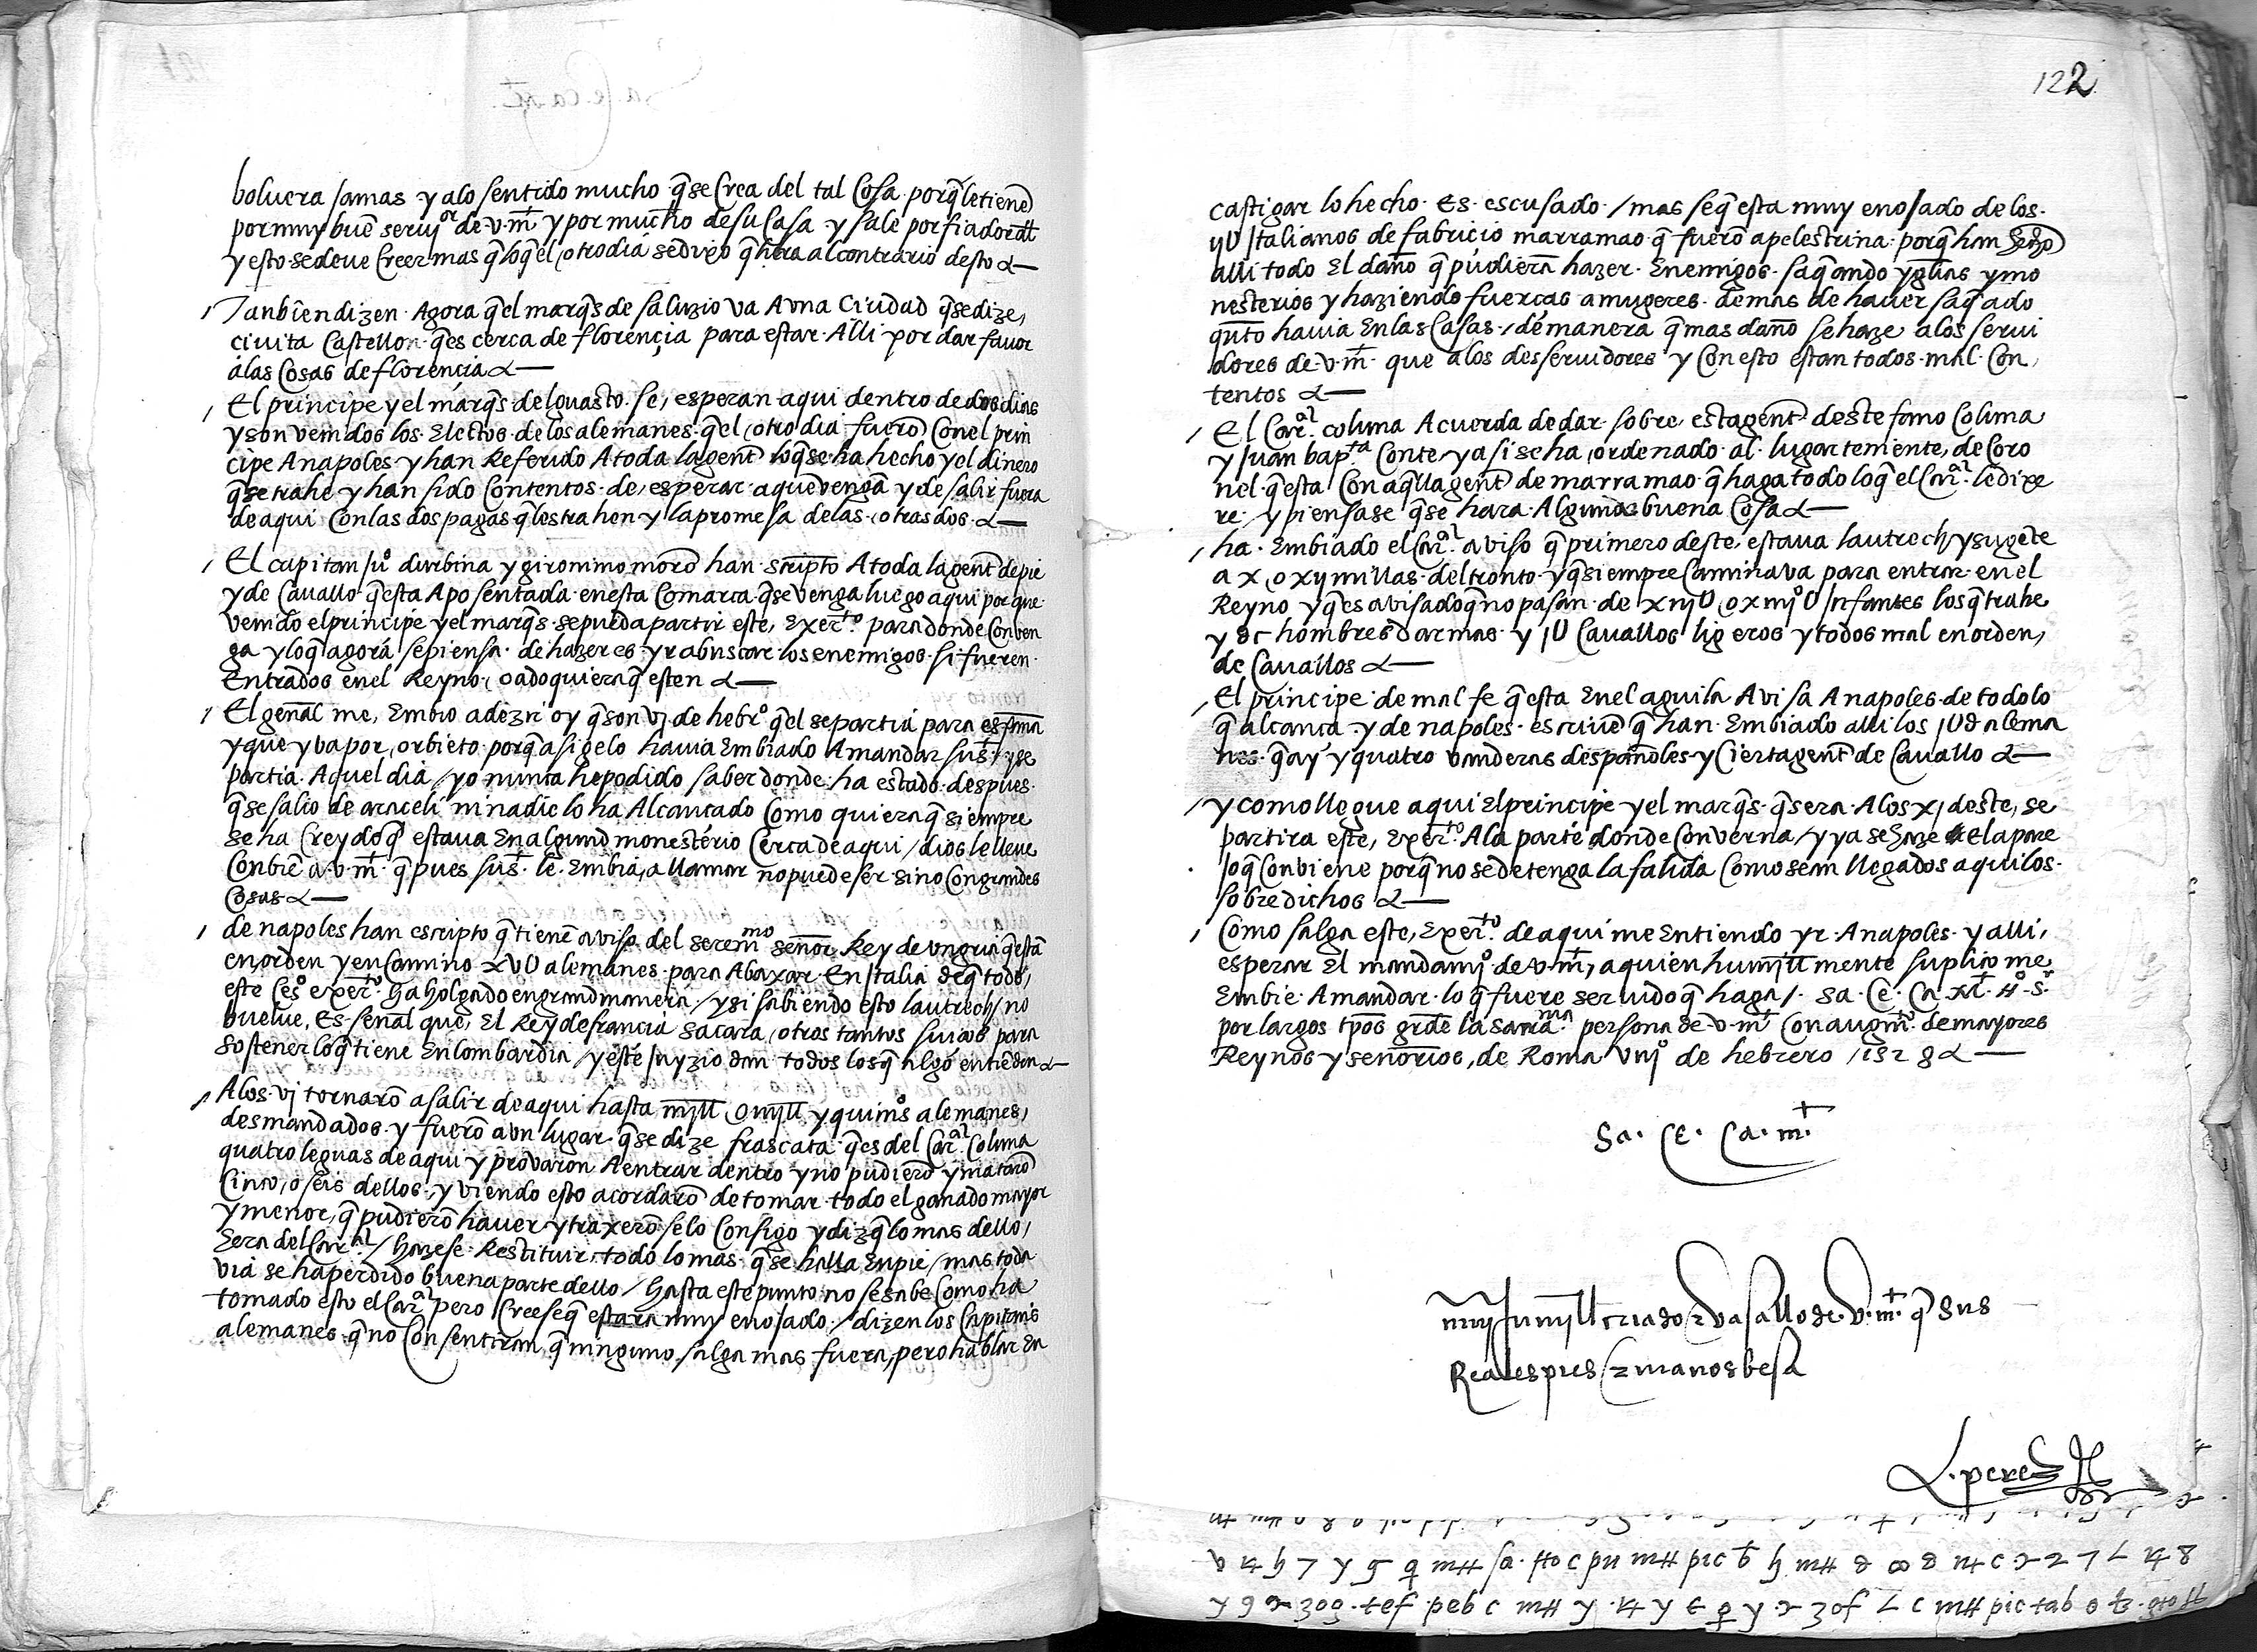 bolvera jamas y alo sentido mucho q̃se Crea del tal Cosa porq̃ letiene
por muy buẽ seruyor de v. mt y por mucho desu Casa y sale por fiador
y esto sedeve Creer mas q̃ loq̃ el otrodia sedixo q̃ hera al contrario desto
Tanbien dizen Agora q̃el marqs̃ de saluzio va Auna Ciudad q̃sedize
civita Castellon q̃es cerca de florençia para estar Alli por dar favor
alas Cosas de florençia
El principe y el marqs̃ delguasto se esperan aqui dentro de dos dias
y son venidos los Electos delos alemanes q̃el otro dia fuerõ Conel prin
cipe Anapoles y han Referido Atoda lagent̃ loq̃se ha hecho y el dinero
q̃se trahe y han sido Contentos de esperar aquevengã y de salir fuera
de aqui Conlas dos pagas q̃ les trahen y lapromesa delas otras dos
El capitan juº durbina y gironimo morõ han scripto Atoda lagent̃ depie
y de Cavallo q̃esta Aposentada enesta Comarca q̃se venga luego aqui porque
venido elprincipe yel marqs̃ sepueda partir este, exerto para donde Conven
ga y loq̃ agora sepiensa de hazer es yr abuscar los enemigos si fueren
Entrados enel Reyno o adoquieraq̃ esten
El genãl me, Embio adezir oy q̃son vj de hebrº q̃el separtia para espana
y que yva por orbieto porq̃ asi gelo havia Embiado Amandar su st. y se
partia Aquel dia / yo nunca hepodido saber donde ha estado despues
q̃se salio de araceli ni nadie lo ha Alcancado Como quieraq̃ siempre
se ha Creydoq̃ estava En algund monesterio Cerca de aqui / dios lelleve
Conbiẽ a v. mt q̃ pues su st. le Embia, a llamar nopuede ser sino Congrandes
Cosas
de napoles han escripto q̃ tienẽ aviso del seremo señor Rey de ungria q̃esta
en orden y en Camino xvU alemanes para Abaxar En Italia deq̃ todo,
este Ces° exerto ha holgado engrand manera / y si sabiendo esto lautrech / no
buelve, Es señal que, El Rey defrancia sacara, otros tantos suizos para
sostener loq̃ tiene Enlombardia / y este Juyzio dan todos losq̃ Algo entiẽden
Alos vj tornarõ asalir deaqui hasta mjll o mjll y quinos alemanes,
desmandados y fuerõ aun lugar q̃se dize frascata q̃es del Caral Coluna
quatro leguas de aqui y provaron Aentrar dentro y no pudierõ y matarõ
Cinco, o seis dellos, y viendo esto acordarõ de tomar todo el ganado mayor
y menor, q̃ pudierõ haver y traxerõ selo Consigo y diz q̃ lo mas dello,
hera del Caral / hazese Restituir todo lo mas q̃ se halla Enpie / mas toda
via se haperdido buena parte dello / hasta este punto no sesabe Como ha
tomado esto el Caral pero Creeseq̃ estara muy enojado / dizen los Capitanes
alemanes q̃ no Consentiran q̃ ninguno salga mas fuera, pero hablar En
122
castigar lo hecho Es escusado / mas seq̃ esta muy enojado de los
Italianos de fabricio marramao q̃ fuerõ apelestrina porq̃ han hecho
alli todo El daño q̃ pudierã hazer Enemigos saq̃ando ygl̃ias y mo
nesterios y haziendo fuercas amugeres demas de haver saq̃ado
qũto havia Enlas Casas / demanera q̃ mas daño se haze alos servi
dores de v. mt que alos desservidores y Con esto estan todos mal Con
tentos
El Caral coluna Acuerda dedar sobre estagent̃ de stefano Coluna
y Juan bapta Conte y asi se ha ordenado al lugarteniente, de Coro
nel q̃esta Con aq̃llagent̃ de marramao q̃ haga todo loq̃ el Caral lẽdixe
re / y piensase q̃se hara Alguna buena Cosa
ha Embiado el Caral aviso q̃ primero deste, estava lautrech y sugẽte
a x, o xij millas deltronto y q̃siempre Caminava para entrar enel
Reyno y q̃es avisadoq̃ no pasan de Infantes losq̃ trahe
y hombres darmas y jU Cavallos ligeros y todos mal enorden,
de Cavallos
El principe de malfe q̃ esta Enel aguila Avisa Anapoles de todo lo
q̃ alcanca y de napoles escrivẽ q̃ han Embiado alli los alema
nes q̃ ay y quatro vanderas despañoles y Ciertagent̃ de Cavallo
y como llegue aqui Elprincipe y el marqs̃ q̃sera Alos xj deste, se
partira este, exerto Ala parte donde Converna / y ya sehaze El apare
Joq̃ Conbiene porq̃no sedetenga la salida Como sean llegados aqui los
sobredichos
Como salga este, exerto de aqui me Entiendo yr Anapoles y alli,
esperar El mandamjº de v. mt, aquien humjll mente suplico me
Embie Amandar loq̃ fuere servidoq̃ haga /. Sa. Ce. Ca. Mt. nº. sr
por largos tp̃os grde la sacrama persona de v. mt Con augmto de mayores
Reynos y señorios, de Roma viijº de hebrero 1528
Sa. Ce. Ca. mt
muy humjll criado z vasallo de. v. mt. q̃ sus
Reales pies z manos besa
L. perez